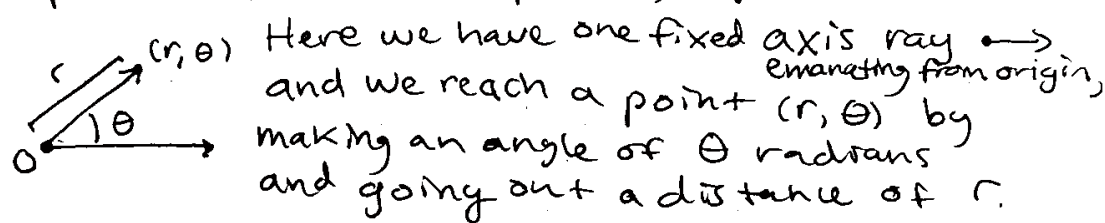 (r, θ) Here we have one fixed axis ray •→
emanating from origin,
and we reach a point (r, θ) by
r
θ
O
making an angle of θ radians
and going out a distance of r.